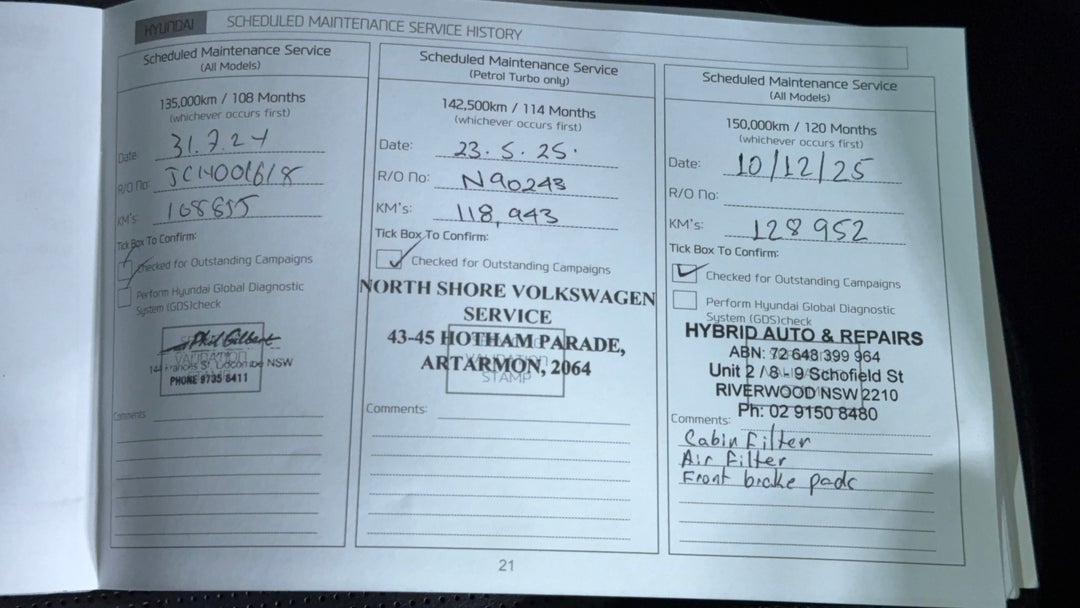 HYUNDAI
SCHEDULED MAINTENANCE SERVICE HISTORY
Scheduled Maintenance Service
(All Models)
135,000km / 108 Months
(whichever occurs first)
Date: 31.7.24
R/O No:
KM's:
Tick Box To Confirm:
Checked for Outstanding Campaigns
Perform Hyundai Global Diagnostic
System (GDS)check
Phil Gilbert
VALIDATION
144 Francis St, Lidcombe NSW
STAMP
PHONE 9735 8411
Comments:
Scheduled Maintenance Service
(Petrol Turbo only)
142,500km / 114 Months
(whichever occurs first)
Date: 23.5.25.
R/O No: N90243
KM's: 118,943
Tick Box To Confirm:
Checked for Outstanding Campaigns
NORTH SHORE VOLKSWAGEN
SERVICE
43-45 HOTHAM PARADE,
VALIDATION
ARTARMON, 2064
STAMP
Comments:
Scheduled Maintenance Service
(All Models)
150,000km / 120 Months
(whichever occurs first)
Date: 10/12/25
R/O No:
KM's: 128952
Tick Box To Confirm:
Checked for Outstanding Campaigns
Perform Hyundai Global Diagnostic
System (GDS)check
HYBRID AUTO & REPAIRS
ABN: 72 648 399 964
Unit 2 / 8 - 9 Schofield St
RIVERWOOD NSW 2210
Ph: 02 9150 8480
Comments: Cabin filter
Air filter
Front brake pads
21